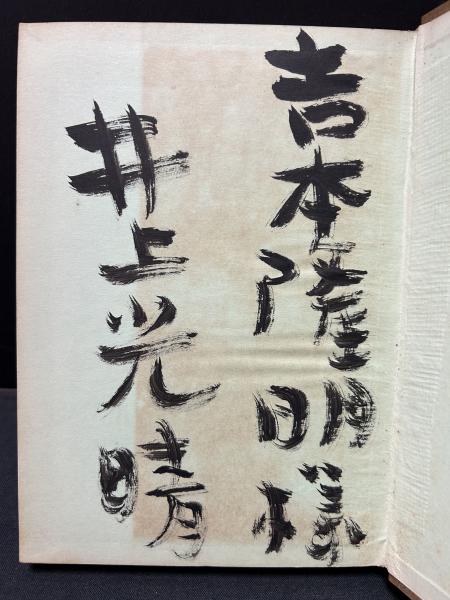 吉本隆明様
井上光晴